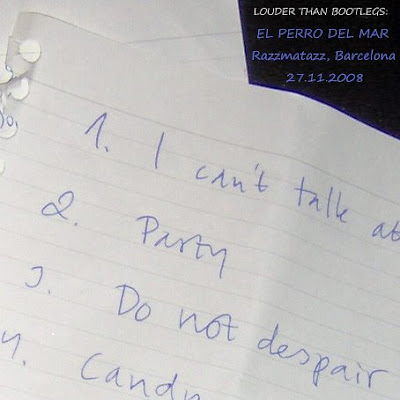 LOUDER THAN BOOTLEGS:
EL PERRO DEL MAR
Razzmatazz, Barcelona
27.11.2008
1. I can't talk
2. Party
3. Do not despair
4. Candy